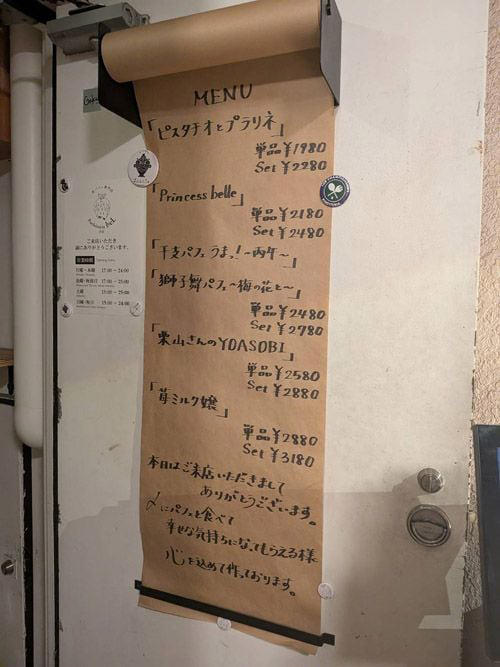 MENU
「ピスタチオとプラリネ」
単品¥1980
Set ¥2280
「Princess belle」
単品¥2180
Set ¥2480
「干支パフェ うま!〜丙午〜」
「獅子舞パフェ〜梅の花と〜」
単品¥2480
Set ¥2780
「栗山さんのYOASOBI」
単品¥2580
Set ¥2880
「苺ミルク嬢」
単品¥2880
Set ¥3180
本日はご来店いただきまして
ありがとうございます。
〆にパフェを食べて
幸せな気持ちになってもらえる様
心を込めて作っております。
ご来店いただき
誠にありがとうございます。
営業時間
17:00 - 24:00
17:00 - 25:00
土曜
15:00 - 25:00
15:00 - 24:00